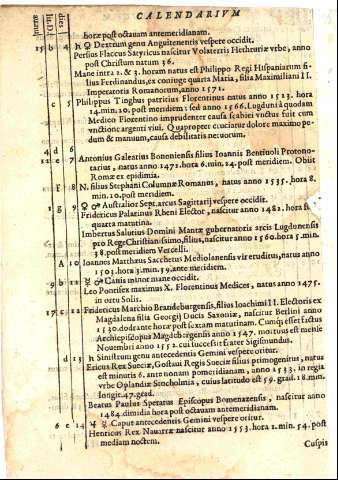 CALENDARIVM
dies Iul. D.
aurni
horæ post octauam antemeridianam.
15 b 4 ♄ ☿ Dextrum genu Anguitenentis vespere occidit.
Persius Flaccus Satyricus nascitur Volaterris Hethruriæ vrbe, anno
post Christum natum 36.
Mane intra 2. & 3. horam natus est Philippo Regi Hispaniarum fi-
lius Ferdinandus, ex coniuge quarta Maria, filia Maximiliani II.
Imperatoris Romanorum, anno 1571.
4 c 5 Philippus Tinghus patricius Florentinus natus anno 1523. hora
14. min. 20. post meridiem; sed anno 1566. Lugduni à quodam
Medico Florentino imprudenter causa scabiei vnctus fuit cum
vnctione argenti viui. Quapropter cruciatur dolore maximo pe-
dum & manuum, causa debilitatis neruorum.
4 d 6
12 e 7 Antonius Galeatius Bononiensis filius Ioannis Bentiuoli Protono-
tarius, natus anno 1472. hora 6. min. 24. post meridiem. Obiit
Romæ ex epidimia.
f 8 N. filius Stephani Columnæ Romanus, natus anno 1535. hora 8.
min. 10. post meridiem.
1 g 9 ♀ ♂ Australior Sept. arcus Sagittarij vespere occidit.
Fridericus Palatinus Rheni Elector, nascitur anno 1482. hora
quarta matutina.
Imbertus Salutius Domini Mantæ gubernatoris arcis Lugdunensis
pro Rege Christianissimo, filius, nascitur anno 1560. hora 5. min.
38. post meridiem Vercelli.
A 10 Ioannes Matthæus Sacchetus Mediolanensis vir eruditus, natus anno
1503. hora 3. min. 39. ante meridiem.
9 b 11 ☿ Canis minor mane occidit.
Leo Pontifex maximus X. Florentinus Medices, natus anno 1475.
in ortu Solis.
17 c 12 Fridericus Marchio Brandeburgensis, filius Ioachimi II. Electoris ex
Magdalena filia Georgij Ducis Saxoniæ, nascitur Berlini anno
1530. dodrante horæ post sextam matutinam. Cumque esset factus
Archiepiscopus Magdeburgensis anno 1547. mortuus est mense
Nouembri anno 1552. cui successit frater Sigismundus.
d 13 ♄ Sinistrum genu antecedentis Gemini vespere oritur.
Ericus Rex Sueciæ, Gostaui Regis Sueciæ filius primogenitus, natus
est minutis 6. ante nonam pomeridianam, anno 1533. in regia
vrbe Oplandiæ Stocholmia, cuius latitudo est 59. grad. 18. min.
longit. 47. grad.
Beatus Paulus Speratus Episcopus Bomenazensis, nascitur anno
1484. dimidia hora post octauam antemeridianam.
6 e 14 ♀ Caput antecedentis Gemini vespere oritur.
Henricus Rex Nauarræ nascitur anno 1553. hora 2. min. 54. post
mediam noctem.
Cuspis